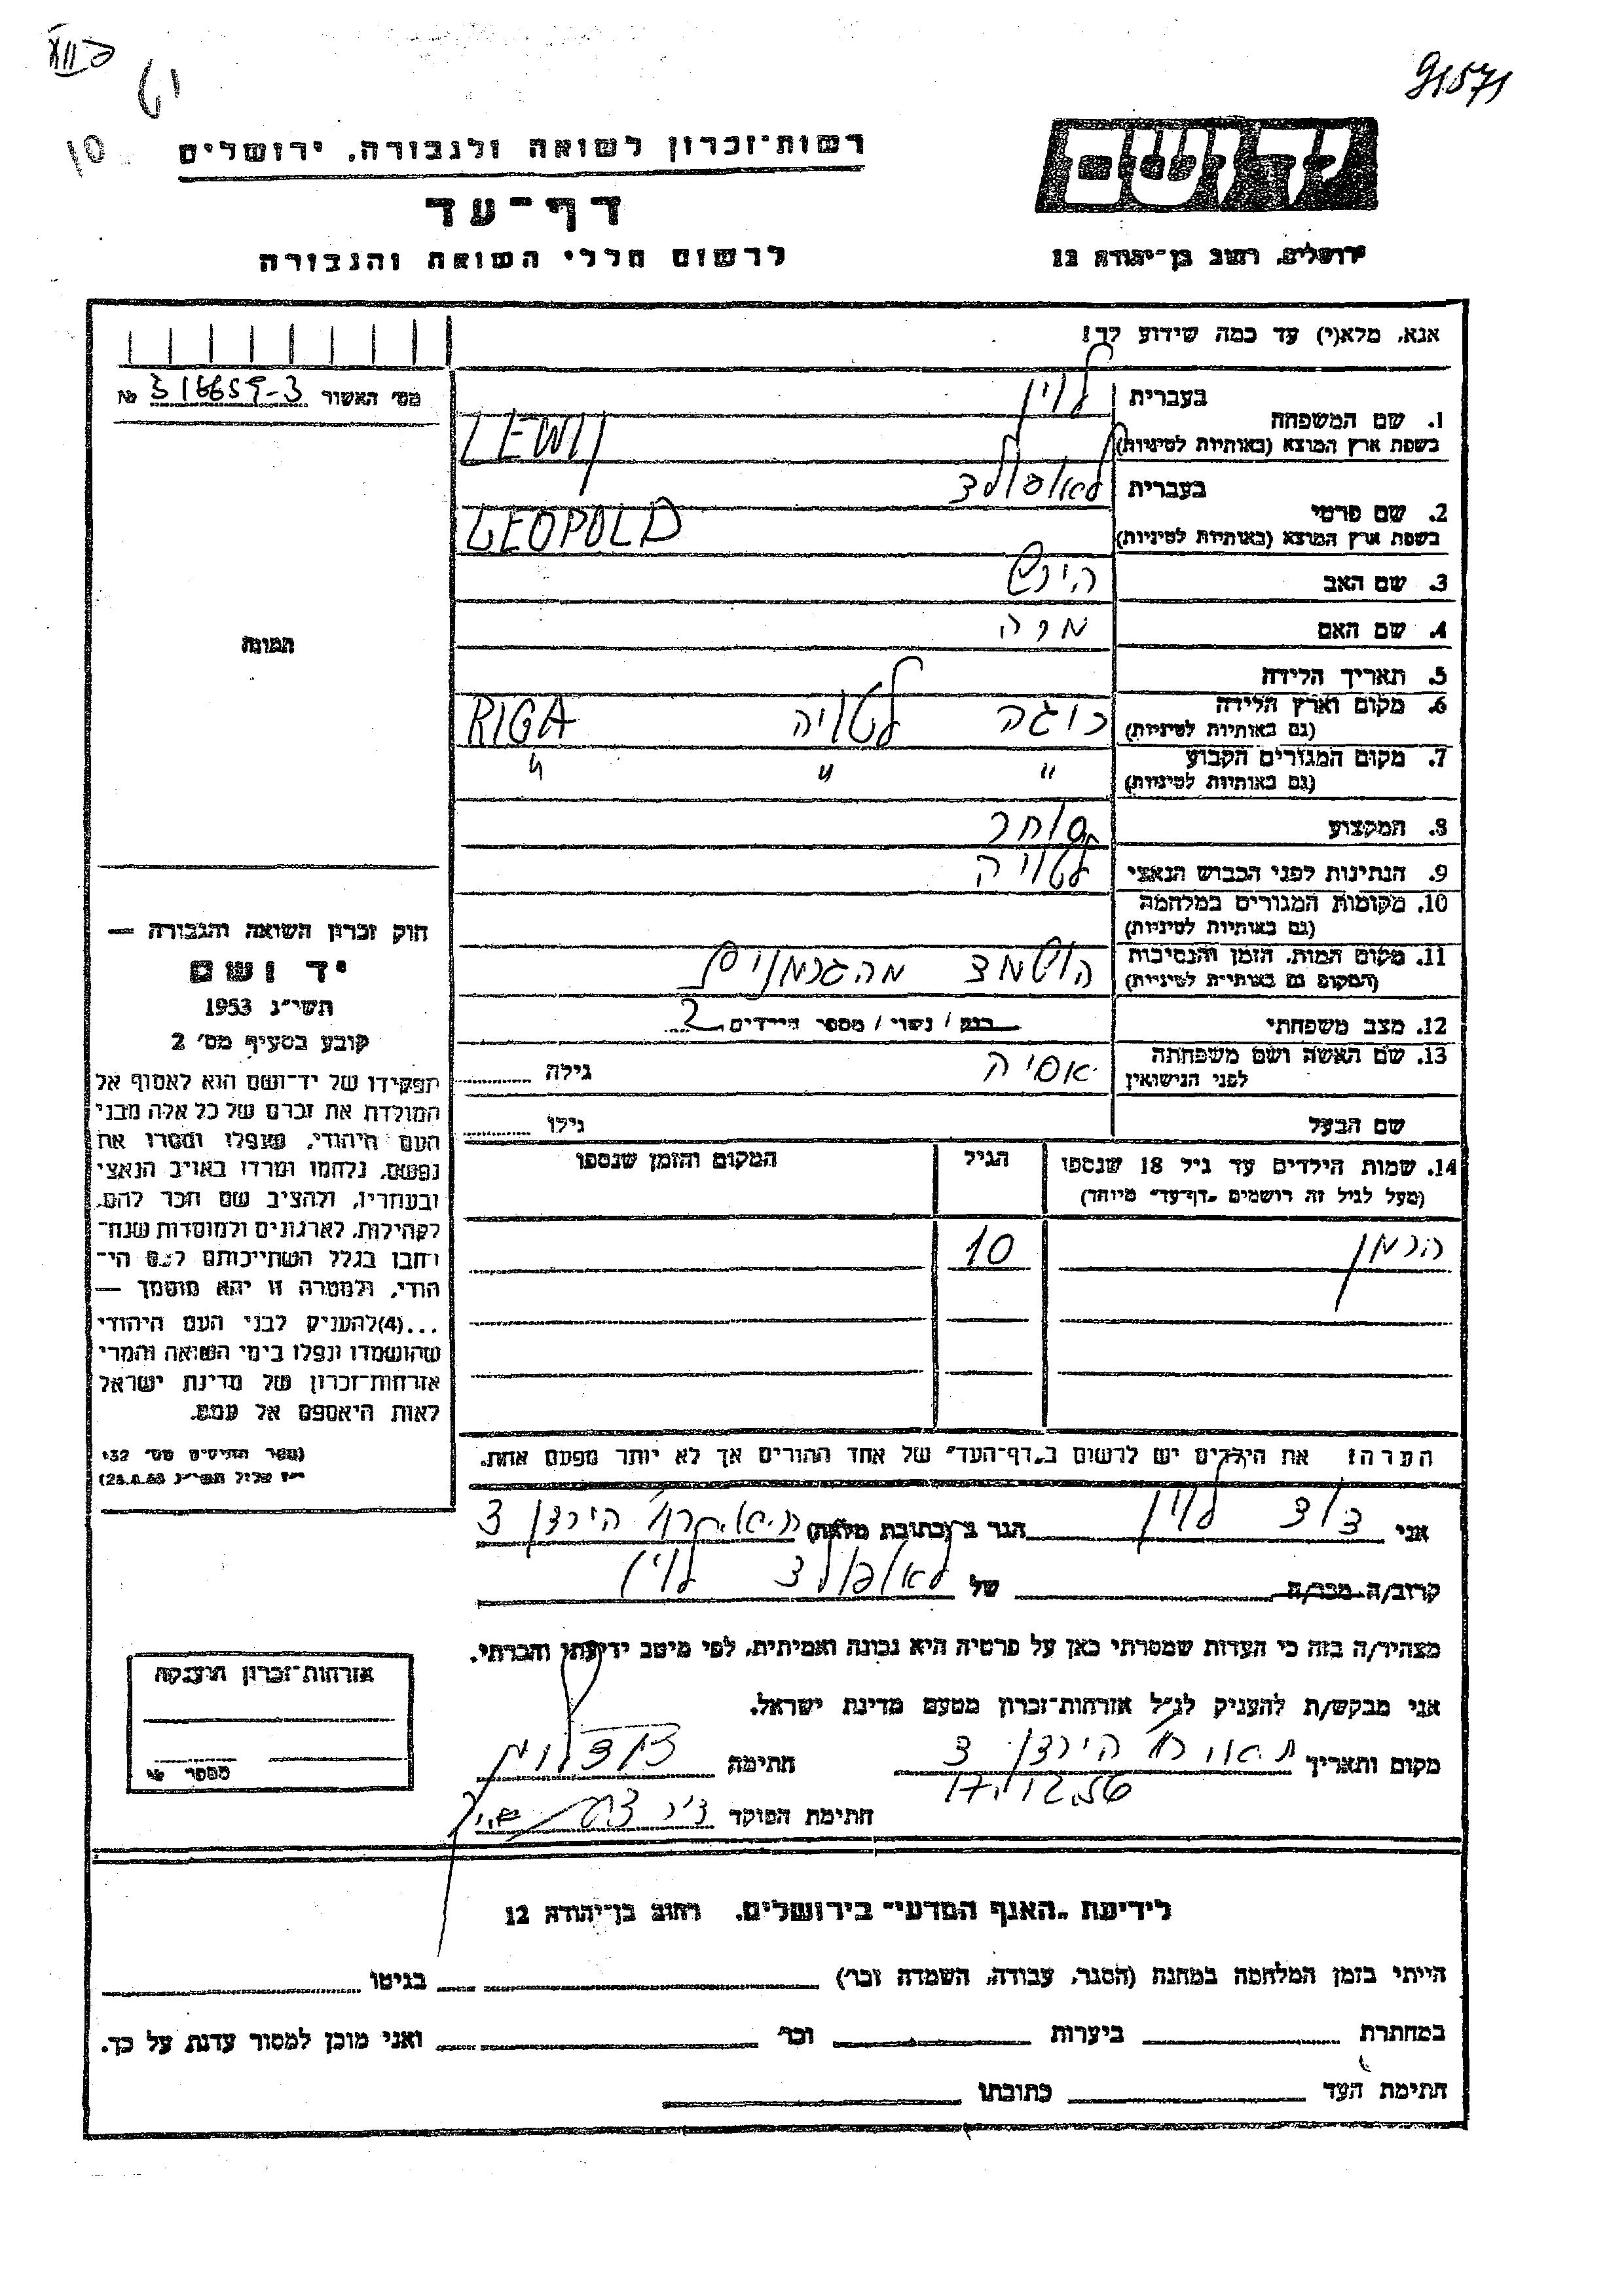 91571
10
יד ושם
ירושלים, רחוב בן־יהודה 12
רשות־זכרון לשואה ולגבורה, ירושלים
דף־עד
לרשום חללי השואה והגבורה
אנא, מלא(י) עד כמה שידוע לך!
מס׳ האשור
1. שם המשפחה
בעברית לוין
בשפת ארץ המוצא (באותיות לטיניות) LEWIJ
2. שם פרטי
בעברית לאופולד
בשפת ארץ המוצא (באותיות לטיניות) LEOPOLD
3. שם האב הירש
4. שם האם מרה
5. תאריך הלידה
6. מקום וארץ הלידה ריגה לטויה RIGA
(גם באותיות לטיניות)
7. מקום המגורים הקבוע " " "
(גם באותיות לטיניות)
8. המקצוע סוחר
9. הנתינות לפני הכבוש הנאצי לטויה
10. מקומות המגורים במלחמה
(גם באותיות לטיניות)
11. מקום המות, הזמן והנסיבות הושמד מהגרמנים
(המקום גם באותיות לטיניות)
12. מצב משפחתי רווק / נשוי / מספר הילדים 2
13. שם האשה ושם משפחתה אסיה גילה
לפני הנישואין
שם הבעל גילו
14. שמות הילדים עד גיל 18 שנספו הגיל המקום והזמן שנספו
(מעל לגיל זה רושמים „דף־עד״ מיוחד)
הרמן 10
הערה: את הילדים יש לרשום ב„דף־העד״ של אחד ההורים אך לא יותר מפעם אחת.
תמונה
חוק זכרון השואה והגבורה —
יד ושם
תשי״ג 1953
קובע בסעיף מס׳ 2
תפקידו של יד־ושם הוא לאסוף אל
המולדת את זכרם של כל אלה מבני
העם היהודי, שנפלו ומסרו את
נפשם, נלחמו ומרדו באויב הנאצי
ובעוזריו, ולהציב שם וזכר להם,
לקהילות, לארגונים ולמוסדות שנח־
רבו בגלל השתייכותם לעם הי־
הודי, ולמטרה זו יהא מוסמך —
...(4)להעניק לבני העם היהודי
שהושמדו ונפלו בימי השואה והמרי
אזרחות־זכרון של מדינת ישראל
לאות היאספם אל עמם.
(ספר החוקים מס׳ 132
אני דוד לוין הגר ב (כתובת מלאה) הירדן 3
קרוב/ה מכר/ה של לאופולד לוין
מצהיר/ה בזה כי העדות שמסרתי כאן על פרטיה היא נכונה ואמיתית, לפי מיטב ידיעתי והכרתי.
אני מבקש/ת להעניק לנ״ל אזרחות־זכרון מטעם מדינת ישראל.
מקום ותאריך הירדן 3 חתימה דוד לוין
17.12.56
חתימת הפוקד
אזרחות־זכרון הוענקה
מספר
לידיעת „האגף המדעי״ בירושלים, רחוב בן־יהודה 12
הייתי בזמן המלחמה במחנה (הסגר, עבודה, השמדה וכו׳) בגיטו
במחתרת ביערות וכו׳ ואני מוכן למסור עדות על כך.
חתימת העד כתובתו